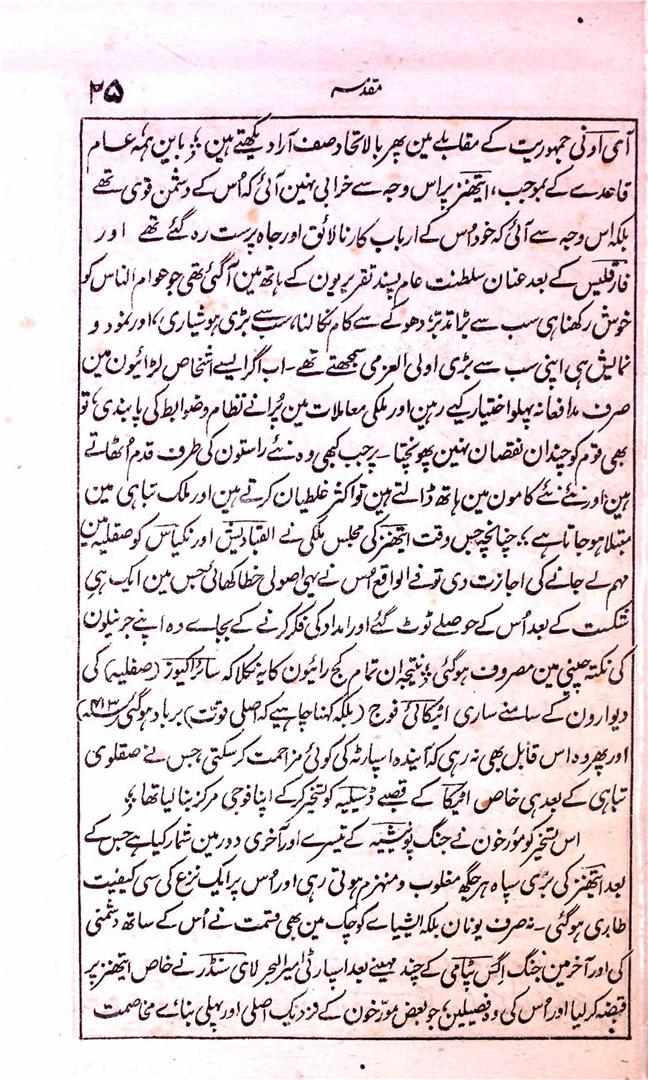 ۲۵ مقدمہ
آی اونی جمہوریت کے مقابلے مین پھر بالاتحاد صف آرا دیکھتے ہین ؛ باین ہمہ عام
قاعدے کے بموجب، ایتھنز پر اس وجہ سے خرابی نہین آئی کہ اُس کے دشمن قوی تھے
بلکہ اس وجہ سے آئی کہ خود اُس کے ارباب کار نالائق اور جاہ پرست رہ گئے تھے اور
فارقلیس کے بعد عنان سلطنت عام پسند تقریریون کے ہاتھ مین آگئی تھی جو عوام الناس کو
خوش رکھنا ہی سب سے بڑا تدبر، دھوکے سے کام نکالنا، سب سے بڑی ہوشیاری، اور نمود و
نمایش ہی اپنی سب سے بڑی اولی العزمی سمجھتے تھے۔ اب اگر ایسے اشخاص لڑائیون مین
صرف مدافعانہ پہلو اختیار کیے رہین اور ملکی معاملات مین پُرانے نظام و ضوابط کی پابندی، تو
بھی قوم کو چندان نقصان نہین پھونچتا۔ پر جب کبھی وہ نئے راستون کی طرف قدم اُٹھاتے
ہین، اور نئے نئے کامون مین ہاتھ ڈالتے ہین تو اکثر غلطیان کرتے ہین اور ملک تباہی مین
مبتلا ہو جاتا ہے ؛ چنانچہ جس وقت ایتھنز کی مجلس ملکی نے القبادیش اور نکیاس کو صقلیہ مین
مہم لے جانے کی اجازت دی تو فی الواقع اُس نے یہی اصولی خطا کھائی جس مین ایک ہی
شکست کے بعد اُس کے حوصلے ٹوٹ گئے اور امداد کی فکر کرنے کے بجاے وہ اپنے جرنیلون
کی نکتہ چینی مین مصروف ہوگئی ؛ نتیجہ ان تمام کج رائیون کا یہ نکلا کہ سائراکیوز (صقلیہ) کی
دیوارون کے سامنے ساری اٹیکائی فوج (بلکہ کہنا چاہیے کہ اصلی قوت) برباد ہوگئی (۴۱۳)
اور پھر وہ اس قابل بھی نہ رہی کہ آیندہ اسپارٹہ کی کوئی مزاحمت کر سکتی، جس نے صقلوی
تباہی کے بعد ہی خاص اٹیکا کے قصبے ڈسیلیہ کو تسخیر کرکے اپنا فوجی مرکز بنا لیا تھا ؛
اس تسخیر کو مورخون نے جنگ پلونیشیہ کے تیسرے اور آخری دور مین شمار کیا ہے جس کے
بعد ایتھنز کی بری سپاہ ہر جگہ مغلوب و منہزم ہوتی رہی اور اُس پر ایک نزع کی سی کیفیت
طاری ہوگئی۔ نہ صرف یونان بلکہ ایشیاے کوچک مین بھی قسمت نے اُس کے ساتھ دشمنی
کی اور آخر مین جنگ اِگس پٹامی کے چند مہینے بعد اسپارٹی امیر البحر لای سنڈر نے خاص ایتھنز پر
قبضہ کر لیا اور اُس کی وہ فصیلین، جو بعض مورخون کے نزدیک اصلی اور پہلی بناے مخاصمت